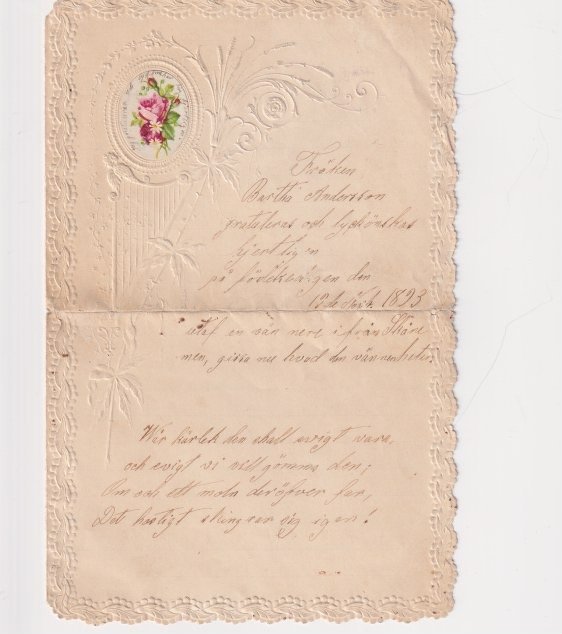 Fröken
Bertha Andersson
gratuleras och lyckönskas
hjertligen
på födelsedagen den
12 de 1893
utaf en vän nere ifrån Skåne
men, gissa nu hvad den vännen heter.
Wår kärlek den skall evigt vara,
och evigt vi vill gömma den;
Om och ett moln deröfver far,
Det hastigt skingrar sig igen!